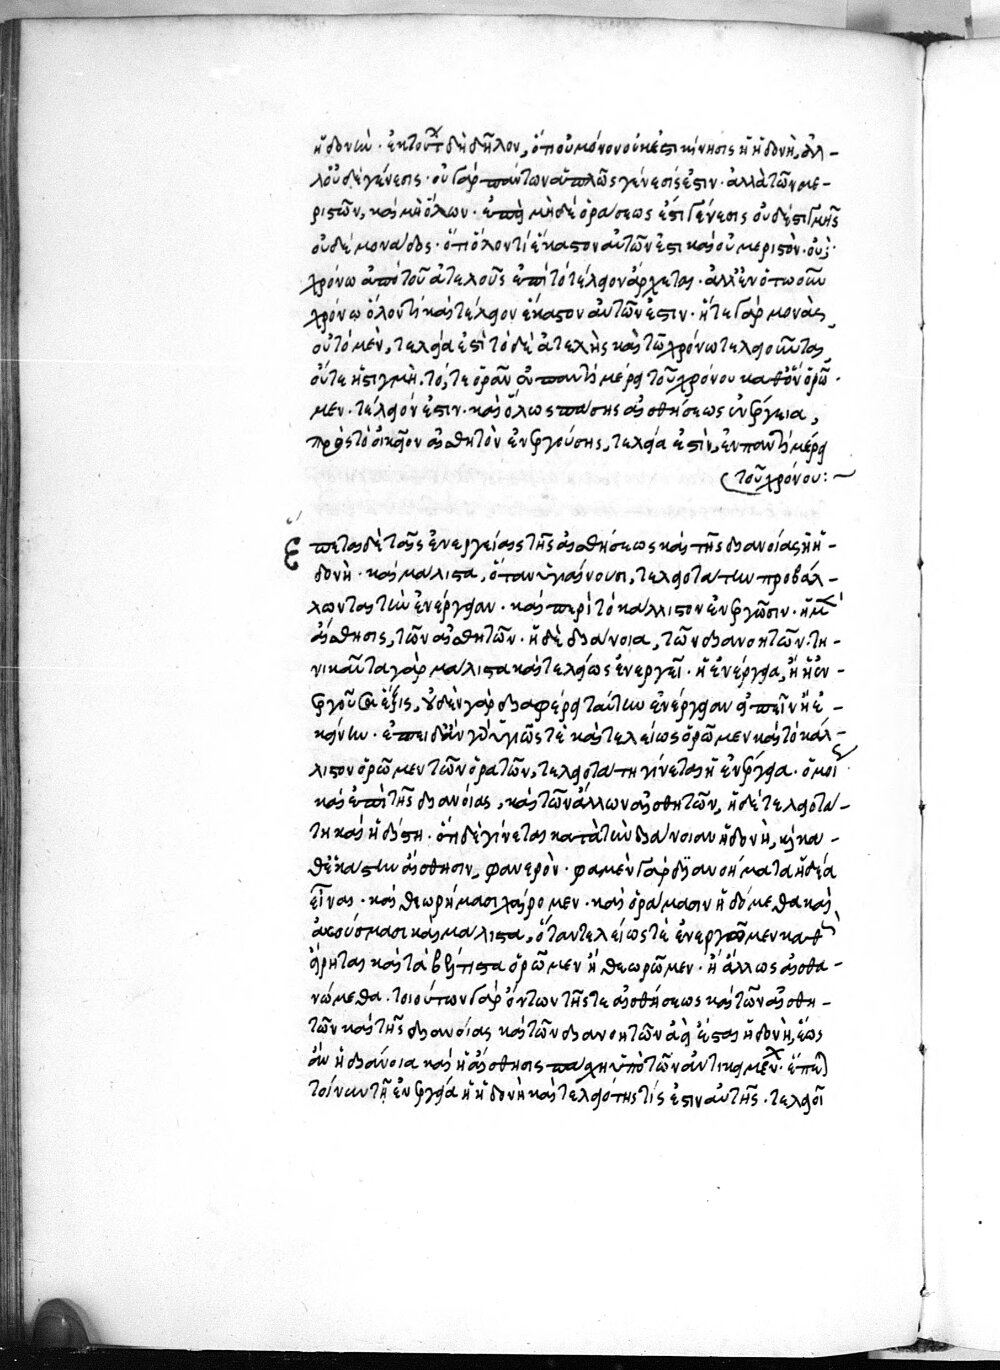 ἡδονὴν · ἐκ τούτου δὴ δῆλον, ὅτι οὐ μόνον οὐκ ἔστι κίνησις ἡ ἡδονὴ, ἀλ-
λ' οὐδὲ γένεσις · οὐ γὰρ πάντων ἁπλῶς γένεσίς ἐστιν · ἀλλὰ τῶν με-
ριστῶν, καὶ μὴ ὅλων · ἐπεὶ μὴ δὲ ὁράσεως ἐστὶ γένεσις οὐδὲ στιγμῆς
οὐδὲ μονάδος · ὅτι ὅλον τί ἕκαστον αὐτῶν ἐστι καὶ οὐ μεριστόν · οὐδὲ
χρόνω ἀπὸ τοῦ ἀτελοῦς ἐπὶ τὸ τέλειον ἄρχεται · ἀλλ' ἐν ὁτωοῦν
χρόνω ὅλον τί καὶ τέλειον ἕκαστον αὐτῶν ἐστιν · ἥ τε γὰρ μονὰς
οὐ τὸ μὲν, τελεία ἐστὶ τὸ δὲ ἀτελὴς καὶ τῶ χρόνω τελειοῦται,
οὔτε ἡ στιγμή. τό, τε ὁρᾶν ἐν παντὶ μέρει τοῦ χρόνου καθ' ὃν ὁρῶ-
μεν · τέλειόν ἐστιν · καὶ ὅλως πάσης αἰσθήσεως ἐνέργεια,
πρὸς τὸ οἰκεῖον αἰσθητὸν ἐνεργούσης, τελεία ἐστὶν, ἐν παντὶ μέρει
τοῦ χρόνου: ~
ἕπεται δὲ ταῖς ἐνεργείαις τῆς αἰσθήσεως καὶ τῆς διανοίας ἡ ἡ-
δονὴ · καὶ μάλιστα, ὅταν ὑγιαίνουσι, τελειοτάτην προβάλ-
λωνται τὴν ἐνέργειαν · καὶ περὶ τὸ κάλλιστον ἐνεργῶσιν · ἡ μὲν
αἴσθησις, τῶν αἰσθητῶν · ἡ δὲ διάνοια, τῶν διανοητῶν · τη-
νικαῦτα γὰρ μάλιστα καὶ τελείως ἐνεργεῖ · ἡ ἐνέργεια, ἢ ἡ ἐν-
εργοῦσα ἕξις, οὐδὲν γὰρ διαφέρει ταύτην ἐνέργειαν εἰπεῖν ἢ ἐ-
κείνην · ἐπειδὰν γοῦν ὑγιῶς τὲ καὶ τελείως ὁρῶμεν καὶ τὸ κάλ-
λιστον ὁρῶμεν τῶν ὁρατῶν, τελειοτάτη γίνεται ἡ ἐνέργεια · ὁμοίως
καὶ ἐπὶ τῆς διανοίας, καὶ τῶν ἄλλων αἰσθητῶν, ἡ δὲ τελειοτά-
τη καὶ ἡδίστη · ὅτι δὲ γίνεται κατὰ τὴν διάνοιαν ἡδονὴ, καὶ κα-
θ' ἑκάστην αἴσθησιν, φανερὸν · φαμὲν γὰρ διανοήματα ἡδέα
εἶναι · καὶ θεωρήμασι χαίρομεν · καὶ ὁράμασιν ἡδόμεθα καὶ
ἀκούσμασι καὶ μάλιστα, ὅταν τελείως τὲ ἐνεργῶμεν καθ'
εἴρηται καὶ τὰ βέλτιστα ὁρῶμεν ἢ θεωρῶμεν · ἢ ἄλλως αἰσθα-
νώμεθα · τοιούτων γὰρ ὄντων τῆς τε αἰσθήσεως καὶ τῶν αἰσθη-
τῶν καὶ τῆς διανοίας καὶ τῶν διανοητῶν ἀεὶ ἔσται ἡδονὴ, ἕως
ἂν ἡ διάνοια καὶ ἡ αἴσθησις πάσχῃ ὑπὸ τῶν ἀντικειμένων · ἕπεται
τοίνυν τῇ ἐνεργεία ἡ ἡδονὴ καὶ τελειότης τίς ἐστιν αὐτῆς · τελειοῖ